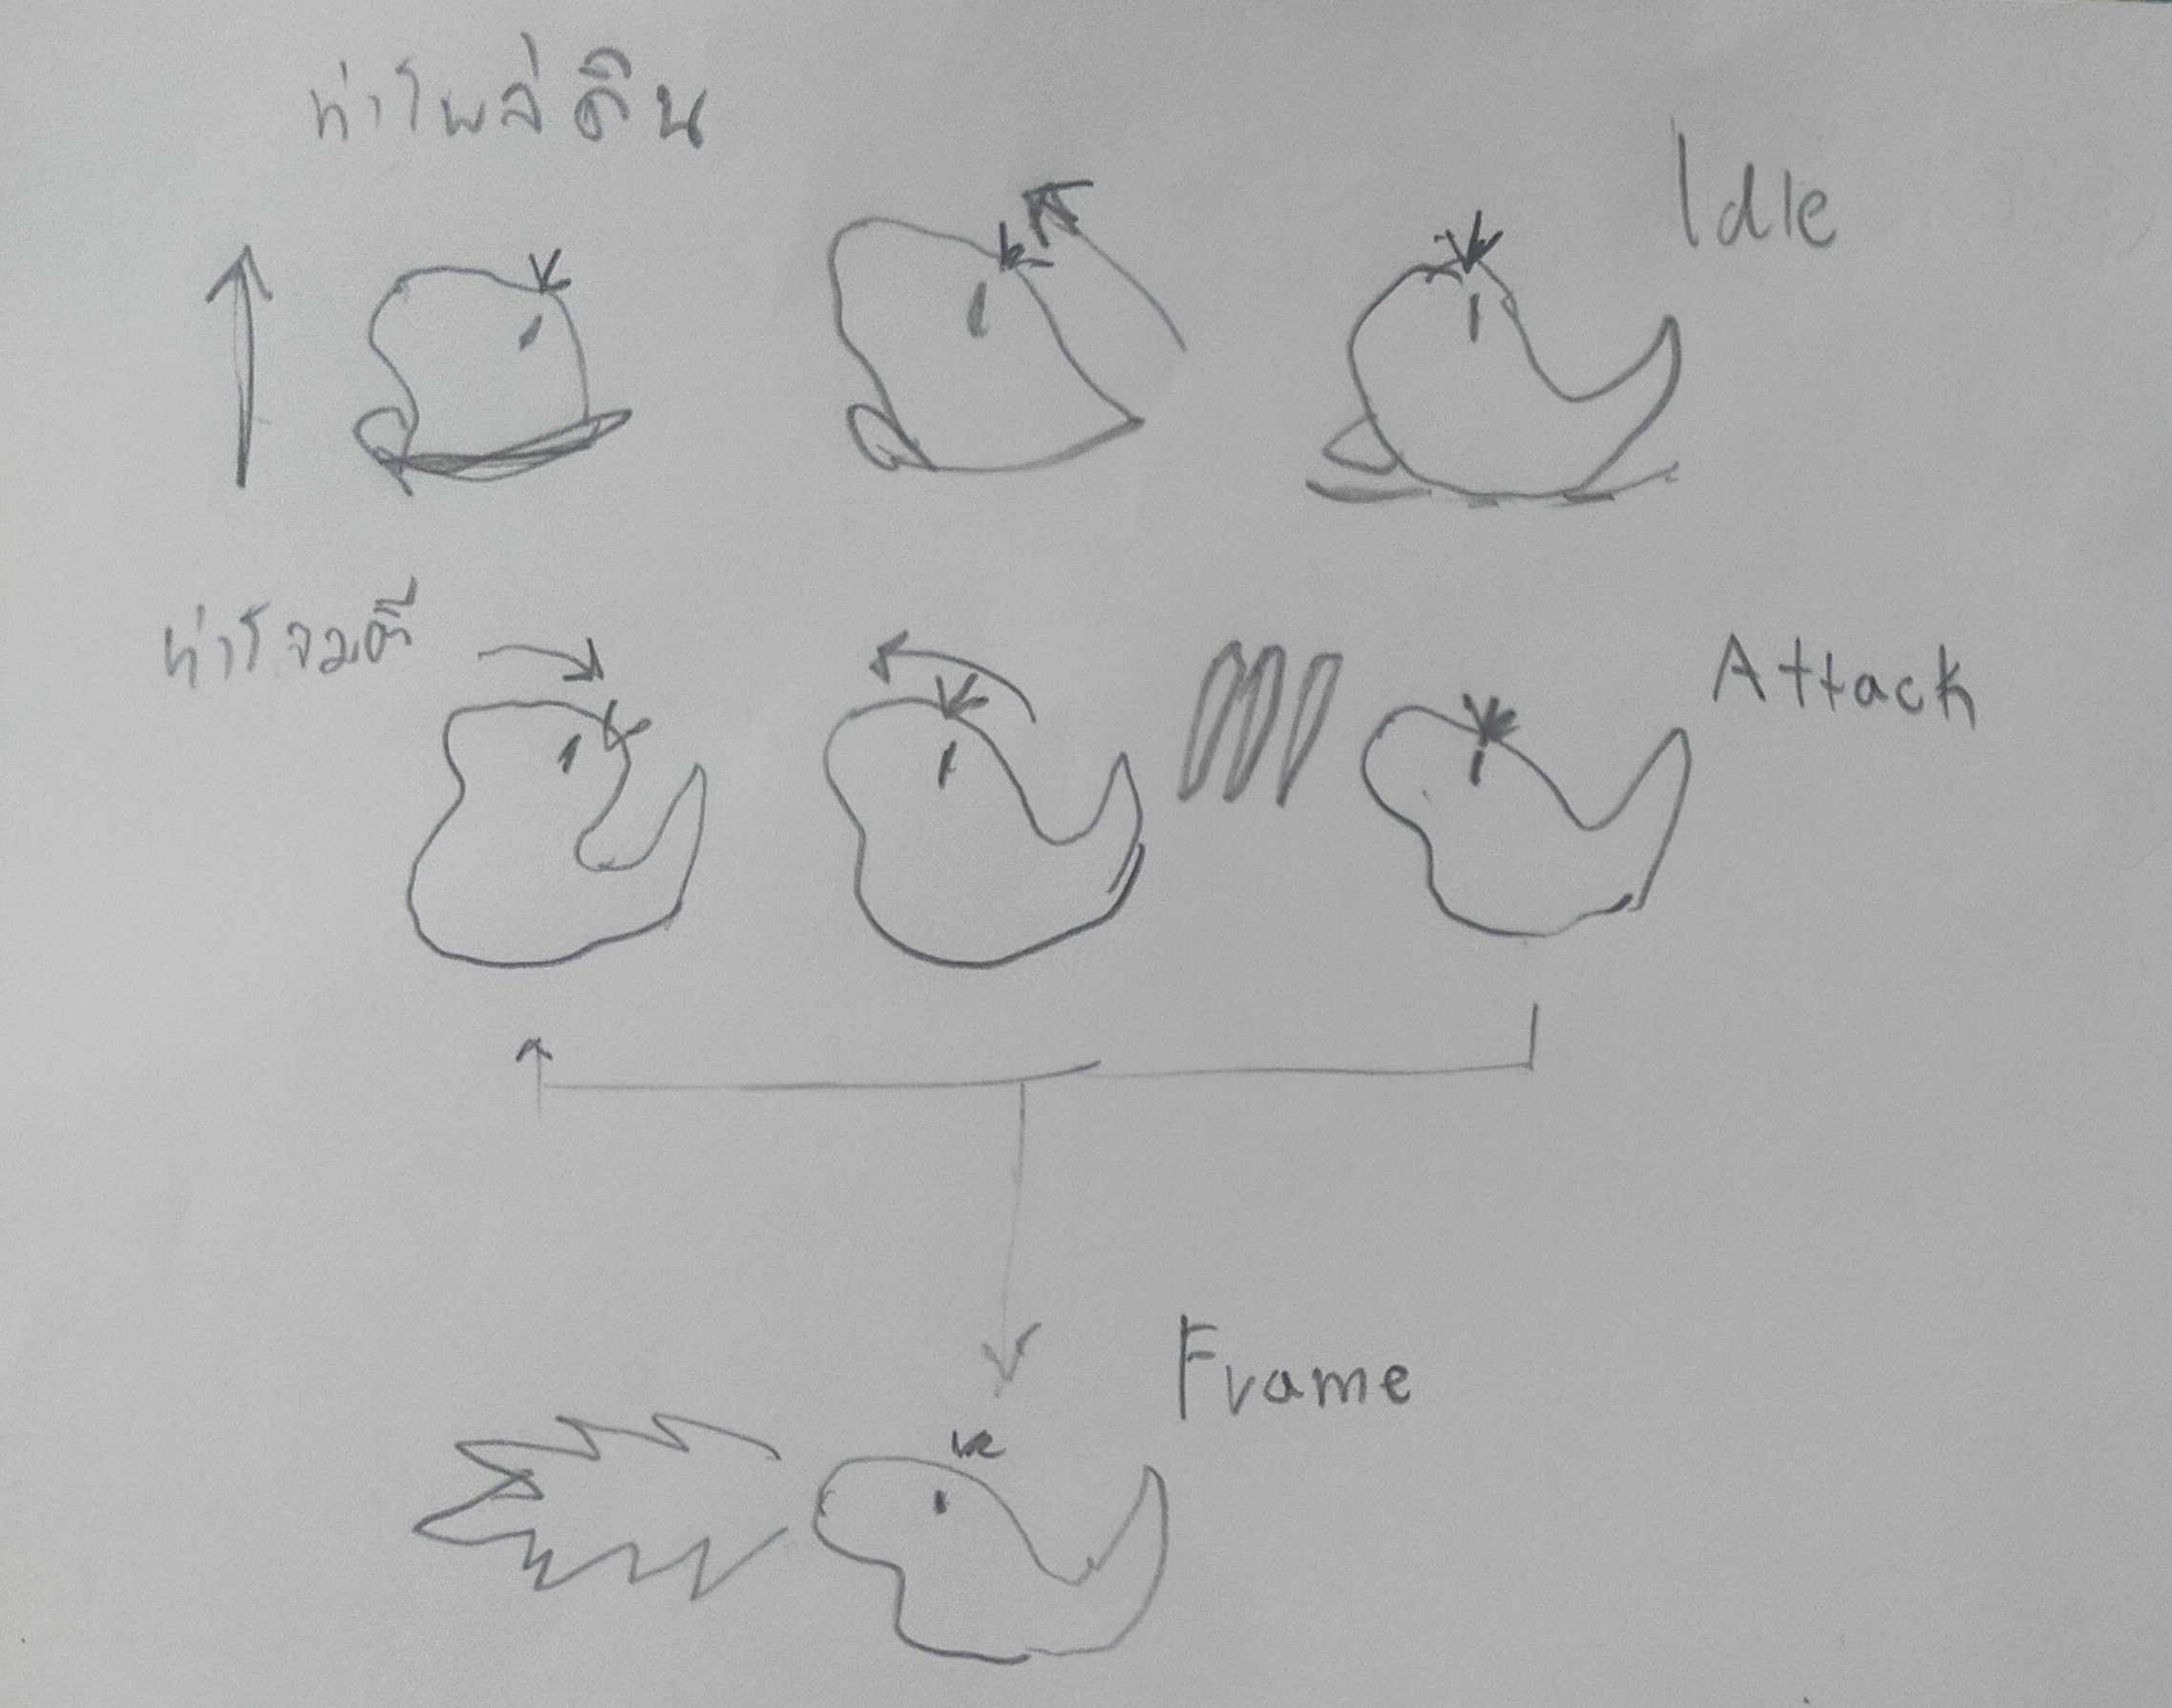 ท่าโผล่ดิน
Idle
ท่าโจมตี
Attack
Frame